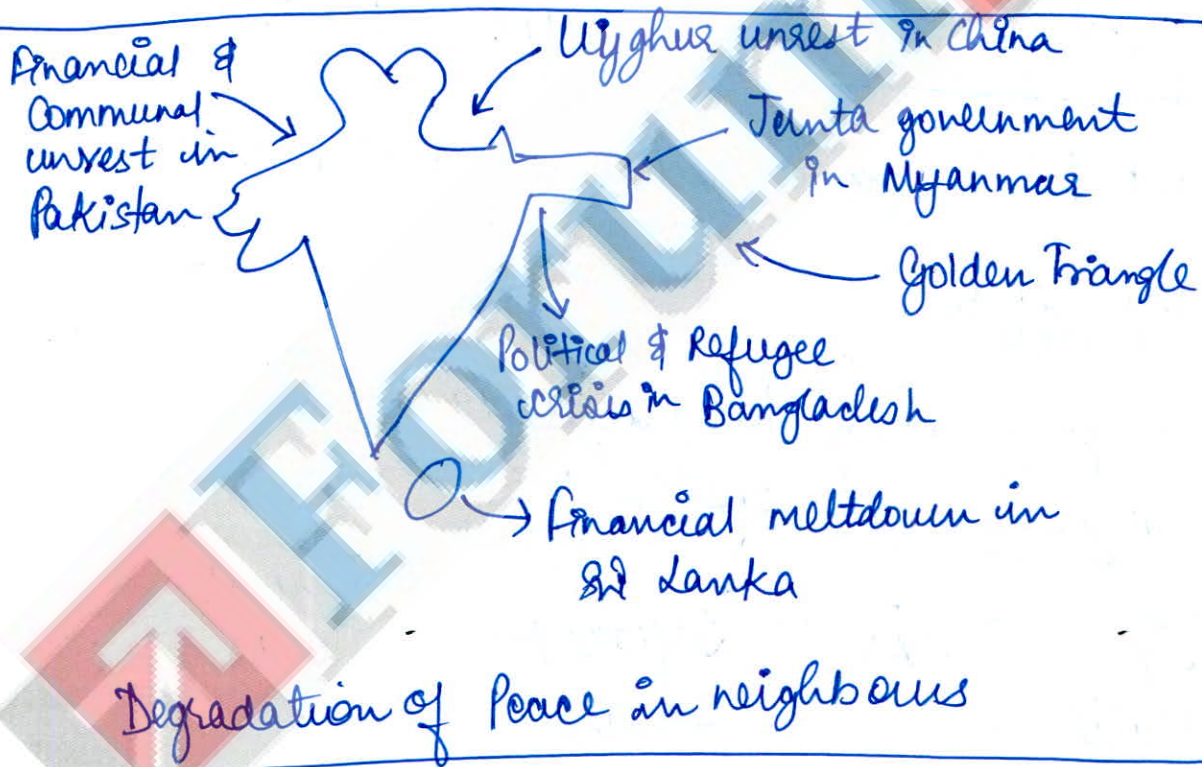 Financial &
Communal
unrest in
Pakistan
Uyghur unrest in China
Junta government
in Myanmar
Golden Triangle
Political & Refugee
crisis in Bangladesh
Financial meltdown in
Sri Lanka
Degradation of Peace in neighbours
Forum